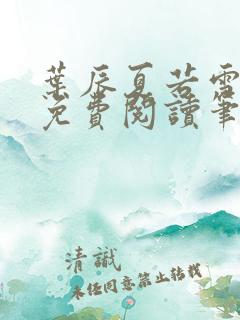 葉辰夏若雪
免費閱讀筆
清識
未經同意禁止轉載